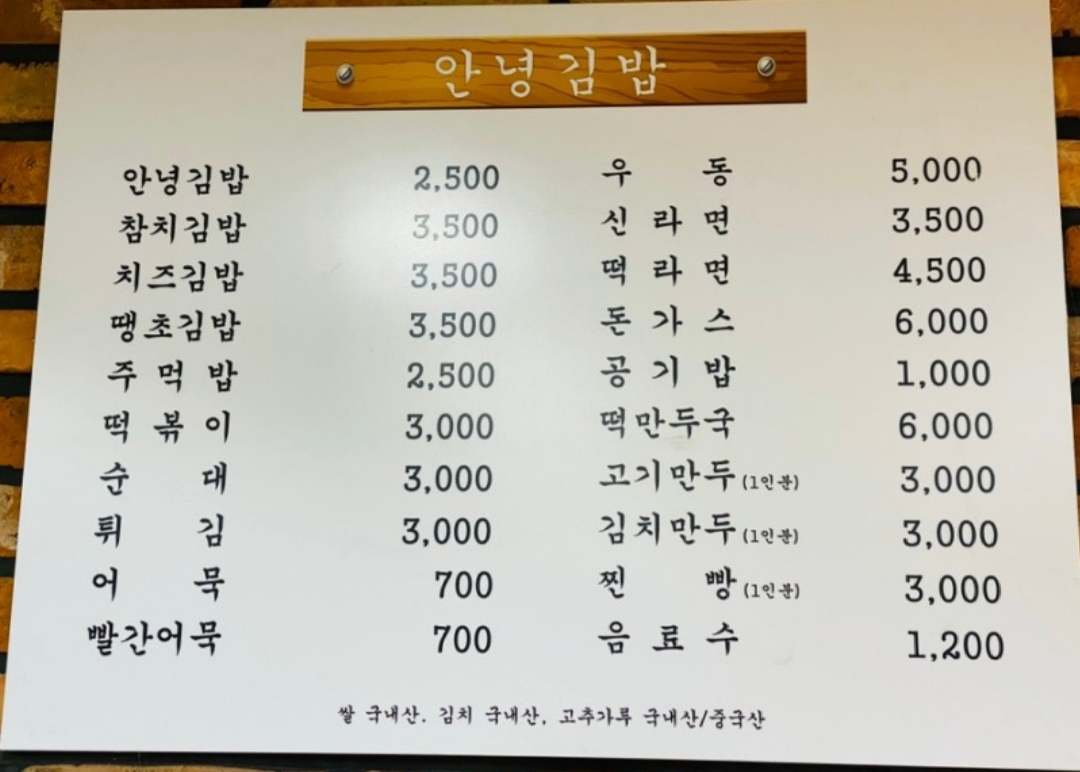 안녕김밥
안녕김밥 2,500
참치김밥 3,500
치즈김밥 3,500
땡초김밥 3,500
주먹밥 2,500
떡볶이 3,000
순대 3,000
튀김 3,000
어묵 700
빨간어묵 700
우동 5,000
신라면 3,500
떡라면 4,500
돈가스 6,000
공기밥 1,000
떡만두국 6,000
고기만두(1인분) 3,000
김치만두(1인분) 3,000
찐빵(1인분) 3,000
음료수 1,200
쌀 국내산. 김치 국내산, 고추가루 국내산/중국산